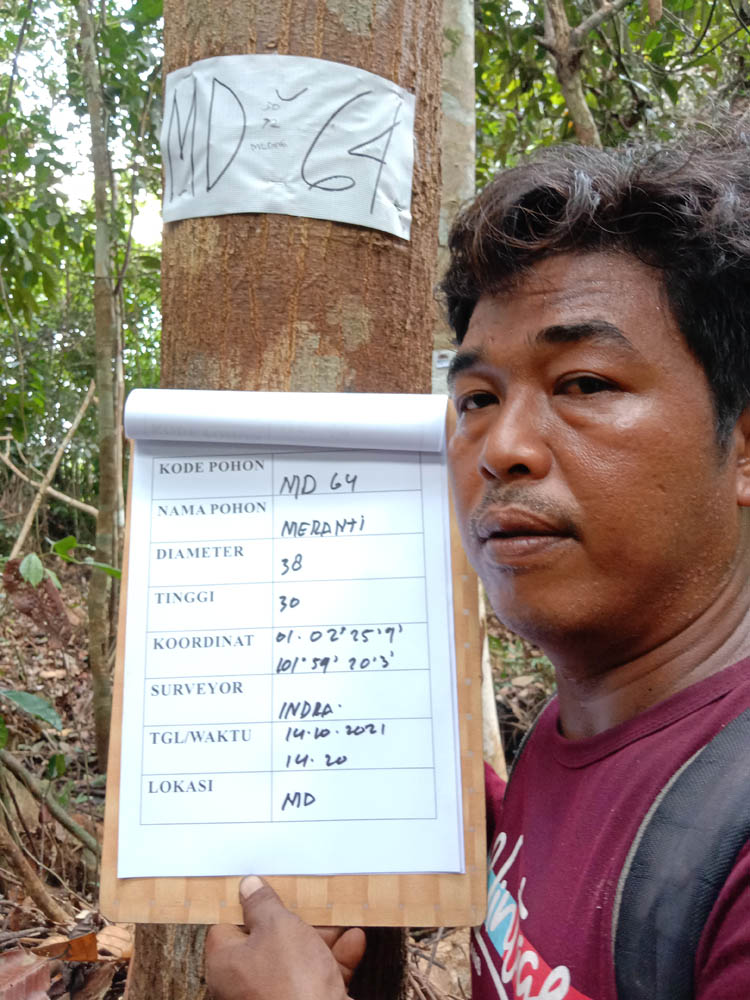 MD 64
KODE POHON MD 64
NAMA POHON MERANTI
DIAMETER 38
TINGGI 30
KOORDINAT 01. 02' 25'9'
101° 59' 20'3'
SURVEYOR INDRA.
TGL/WAKTU 14.10.2021
14.20
LOKASI MD